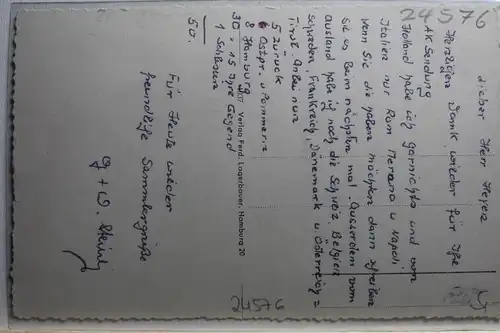 24576
Lieber Herr Meyer
Herzlichen Dank wieder für Ihre
AK Sendung
Holland habe ich garnichts und von
Italien nur Rom Merano u Napoli
wenn Sie die haben möchten dann schreiben
Sie es beim nächsten mal. Ausserdem vom
Ausland habe ich noch die Schweiz, Belgien
Schweden, Frankreich, Dänemark u Österreich =
Tirol. Anbei nun
5 zurück
6 Ostpr. u Pommern
8 Hamburg
30 = 15 Ihre Gegend
1 Schlesien
50.
Verlag Ferd. Lagerbauer, Hamburg 20
Für Heute wieder
freundliche Sammlergrüße
24576